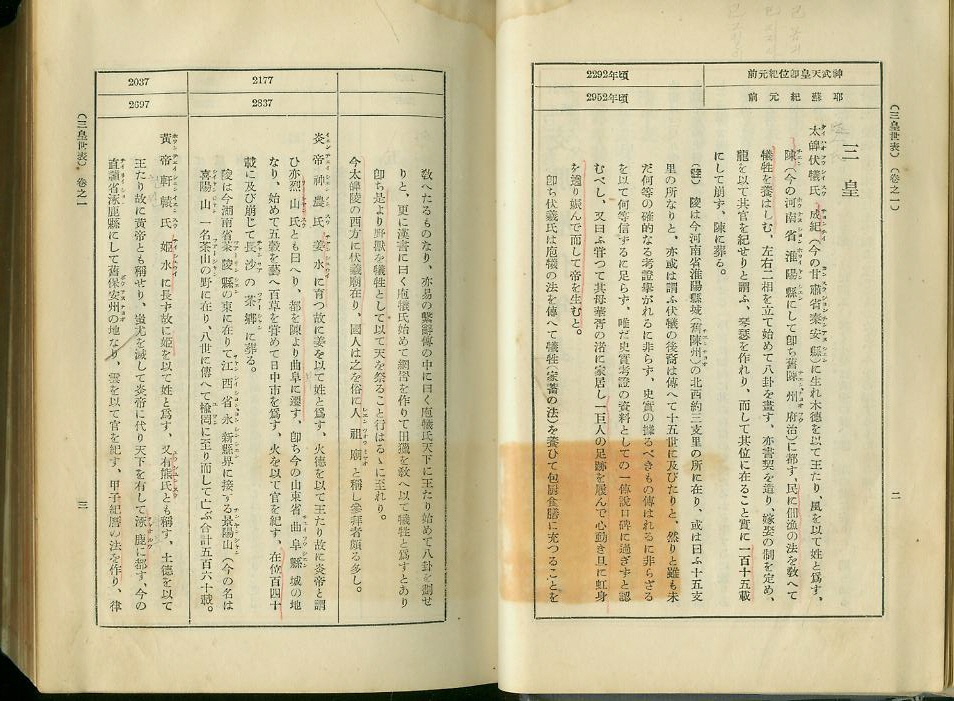 神武天皇即位紀元前
2292年頃
耶蘇紀元前
2952年頃
(三皇世表) (卷之一)
三皇
太皥伏犧氏、成紀(今の甘肅省秦安縣)に生れ木德を以て王たり、風を以て姓と爲す、
陳(今の河南省淮陽縣にして卽ち舊陳州府治)に都す、民に佃漁の法を敎へて
犧牲を養はしむ、左右二相を立て始めて八卦を畫す、亦書契を造り、嫁娶の制を定め、
龍を以て其官を紀せりと謂ふ、琴瑟を作れり、而して其位に在ること實に一百十五載
にして崩ず、陳に葬る。
陵は今河南省淮陽縣城(舊陳州)の北西約三支里の所に在り、或は曰ふ十五支
里の所なりと、亦或は謂ふ伏犧の後裔は傳へて十五世に及びたりと、然りと雖も未
だ何等の確的なる考證擧がれるに非らず、史實の據るべきもの傳はれるに非らざる
を以て何等信ずるに足らず、唯だ史實考證の資料としての一傳說口碑に過ぎずと認
むべし、又曰ふ嘗つて其母華胥の渚に家居し一巨人の足跡を履んで心動き且に虹身
を遶り娠んで而して帝を生むと。
卽ち伏羲氏は庖犧の法を傳へて犧牲(家畜の法)を養ひて包厨食膳に充つることを
二
敎へたるものなり、亦易の繫辭傳の中に曰く庖犧氏天下に王たり始めて八卦を劃せ
りと、更に漢書に曰く庖犧氏始めて網罟を作りて田獵を敎へ以て犧牲と爲すとあり
卽ち是より野獸を犧牲として以て天を祭ること行はるゝに至れり。
今太皥陵の西方に伏羲廟在り、國人は之を俗に人祖廟と稱し參拜者頗る多し。
2177
2837
炎帝神農氏、姜水に育つ故に姜を以て姓と爲す、火德を以て王たり故に炎帝と謂
ひ亦烈山氏とも曰へり、都を陳より曲阜に遷す、卽ち今の山東省曲阜縣城の地
なり、始めて五穀を藝へ百草を嘗めて日中市を爲す、火を以て官を紀す、在位百四十
載に及び崩じて長沙の茶鄕に葬る。
陵は今湖南省茶陵縣の東に在りて江西省永新縣界に接する景陽山(今の名は
喜陽山一名茶山の野に在り、八世に傳へて楡罔に至り而して亡ぶ合計五百六十載。
2037
2697
黃帝軒轅氏、姬水に長ず故に姬を以て姓と爲す、又有熊氏とも稱す、土德を以て
王たり故に黃帝とも稱せり、蚩尤を滅して炎帝に代り天下を有して涿鹿に都す、今の
直隸省涿鹿縣にして舊保安州の地なり、雲を以て官を紀す、甲子紀曆の法を作り、律
(三皇世表) 卷之一
三